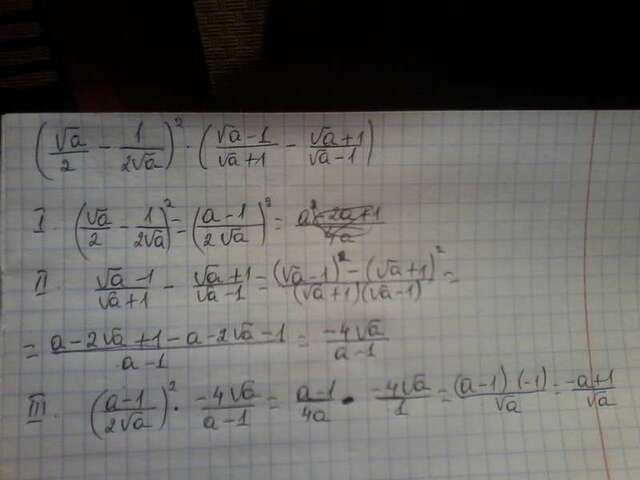 (√a/2 - 1/2√a)² · (√a-1/√a+1 - √a+1/√a-1)
I. (√a/2 - 1/2√a)² = (a-1/2√a)² = a²-2a+1/4a
II. √a-1/√a+1 - √a+1/√a-1 = (√a-1)²-(√a+1)²/(√a+1)(√a-1) =
= a-2√a+1-a-2√a-1/a-1 = -4√a/a-1
III. (a-1/2√a)² · -4√a/a-1 = a-1/4a · -4√a/1 = (a-1)(-1)/√a = -a+1/√a